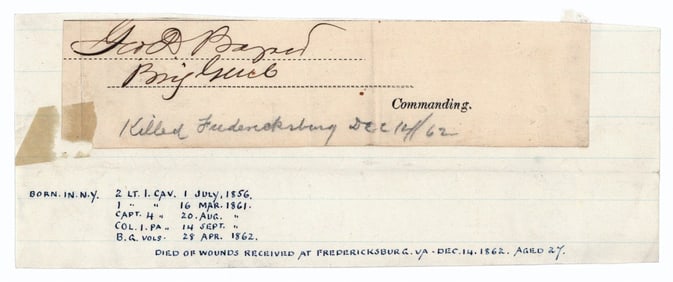 Geo D Bayard
Brig Genl
Commanding.
Killed Fredericksburg DEC 14/62
BORN. IN. N.Y. 2 LT. 1. CAV. 1 JULY, 1856.
1 " " 16 MAR. 1861.
CAPT. 4 " 20. AUG. "
COL. 1. PA " 14 SEPT. "
B. G. VOLS. 28 APR. 1862.
DIED OF WOUNDS RECEIVED AT FREDERICKSBURG. VA - DEC. 14. 1862. AGED 27.